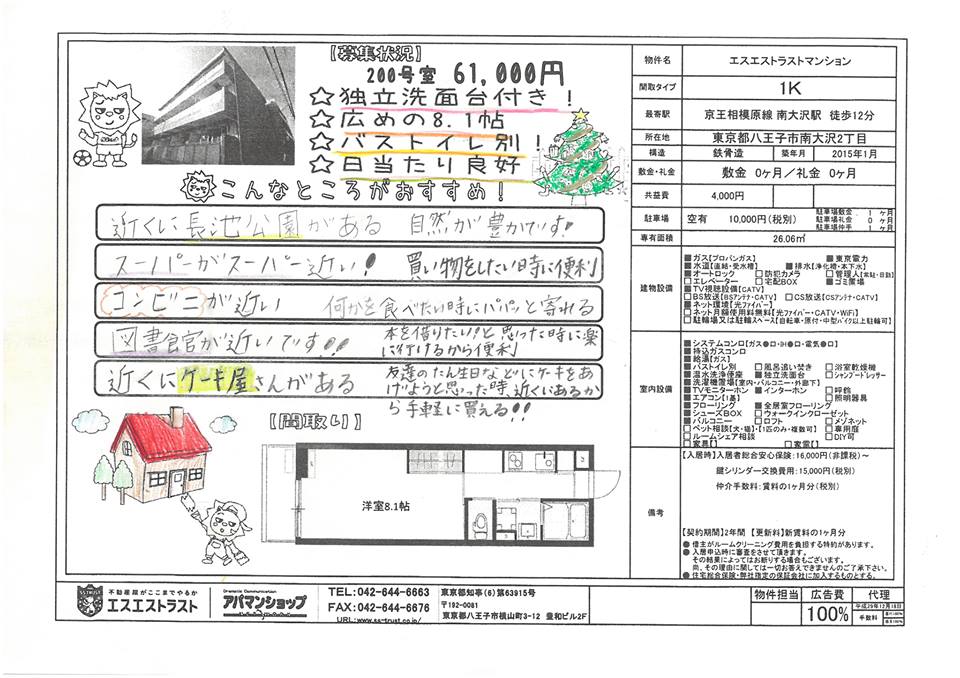 【募集状況】
200号室 61,000円
☆独立洗面台付き！
☆広めの8.1帖
☆バストイレ別！
☆日当たり良好
こんなところがおすすめ！
近くに長池公園がある 自然が豊かです!
スーパーがスーパー近い! 買い物をしたい時に便利
コンビニが近い 何かを食べたい時にパパッと寄れる
図書館が近いです!! 本を借りたい!と思った時に楽
に行けるから便利
近くにケーキ屋さんがある 友達のたん生日などにケーキをあ
げようと思った時、近くにあるか
ら手軽に買える!!
【間取り】
洋室8.1帖
物件名 エスエストラストマンション
間取タイプ 1K
最寄駅 京王相模原線 南大沢駅 徒歩12分
所在地 東京都八王子市南大沢2丁目
構造 鉄骨造 築年月 2015年1月
敷金・礼金 敷金 0ヶ月／礼金 0ヶ月
共益費 4,000円
駐車場 空有 10,000円(税別)
駐車場敷金 1 ヶ月
駐車場礼金 0 ヶ月
駐車場仲手 1 ヶ月
専有面積 26.06㎡
建物設備
■ガス【プロパンガス】 ■東京電力
■水道【直結・受水槽】 ■排水【浄化槽・本下水】
■オートロック □防犯カメラ □管理人【常駐・日勤】
□エレベーター □宅配BOX ■ゴミ置場
■TV視聴設備【CATV】
□BS放送【BSアンテナ・CATV】 □CS放送【CSアンテナ・CATV】
■ネット環境【光ファイバー】
□ネット月額使用料無料【光ファイバー・CATV・WiFi】
□駐輪場又は駐輪スペース【自転車・原付・中型バイク以上駐輪可】
室内設備
■システムコンロ【ガス●口・IH●口・電気●口】
■持込ガスコンロ
■給湯【ガス】
■バストイレ別 □風呂追い焚き □浴室乾燥機
■温水洗浄便座 ■独立洗面台 □シャンプードレッサー
■洗濯機置場【室内・バルコニー・外廊下】
■TVモニターホン ■インターホン □呼鈴
■エアコン【1基】 □照明器具
■フローリング ■全居室フローリング
■シューズBOX □ウォークインクローゼット
■バルコニー □ロフト □メゾネット
□ペット相談【犬・猫】・【1匹のみ・複数可】 □専用庭
□ルームシェア相談 □DIY可
□家具【】 □家電【】
備考
【入居時】入居者総合安心保険：16,000円(非課税)～
鍵シリンダー交換費用：15,000円(税別)
仲介手数料：賃料の1ヶ月分(税別)
【契約期間】2年間 【更新料】新賃料の1ヶ月分
●借主がルームクリーニング費用を負担する特約があります。
●入居申込時に審査をさせて頂きます。
その結果によってはお断りする場合もございます。
尚、その理由に関しては一切お答えできませんのでご了承下さい。
●住宅総合保険・弊社指定の保証会社に加入するものとする。
SSTRUST
不動産屋がここまでやるか
エスエストラスト
Dramatic Communication
アパマンショップ
TEL:042-644-6663
FAX:042-644-6676
URL:www.ss-trust.co.jp/
東京都知事(6)第63915号
〒192-0081
東京都八王子市横山町3-12 豊和ビル2F
物件担当 広告費 代理
100%
平成29年12月18日
手数料